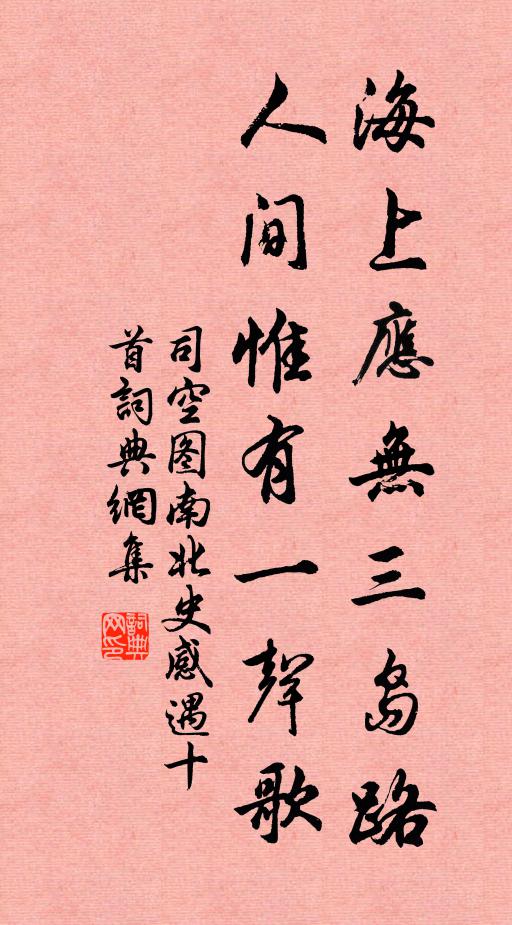 海上應無三島路
人间惟有一聲歌
司空图南北史感遇十
首詞典網集
詞典
网印